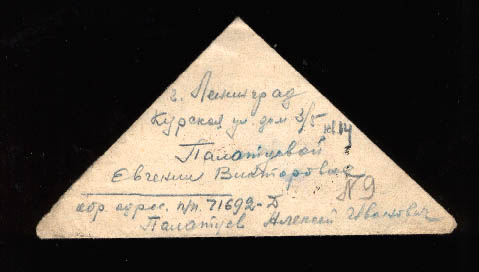 г. Ленинград
Курская ул. дом 3/5
кв. 14
Палатуевой
Евгении Викторовне
№9
обр. адрес. п/п. 71692-Б
Палатуев Алексей Иванович